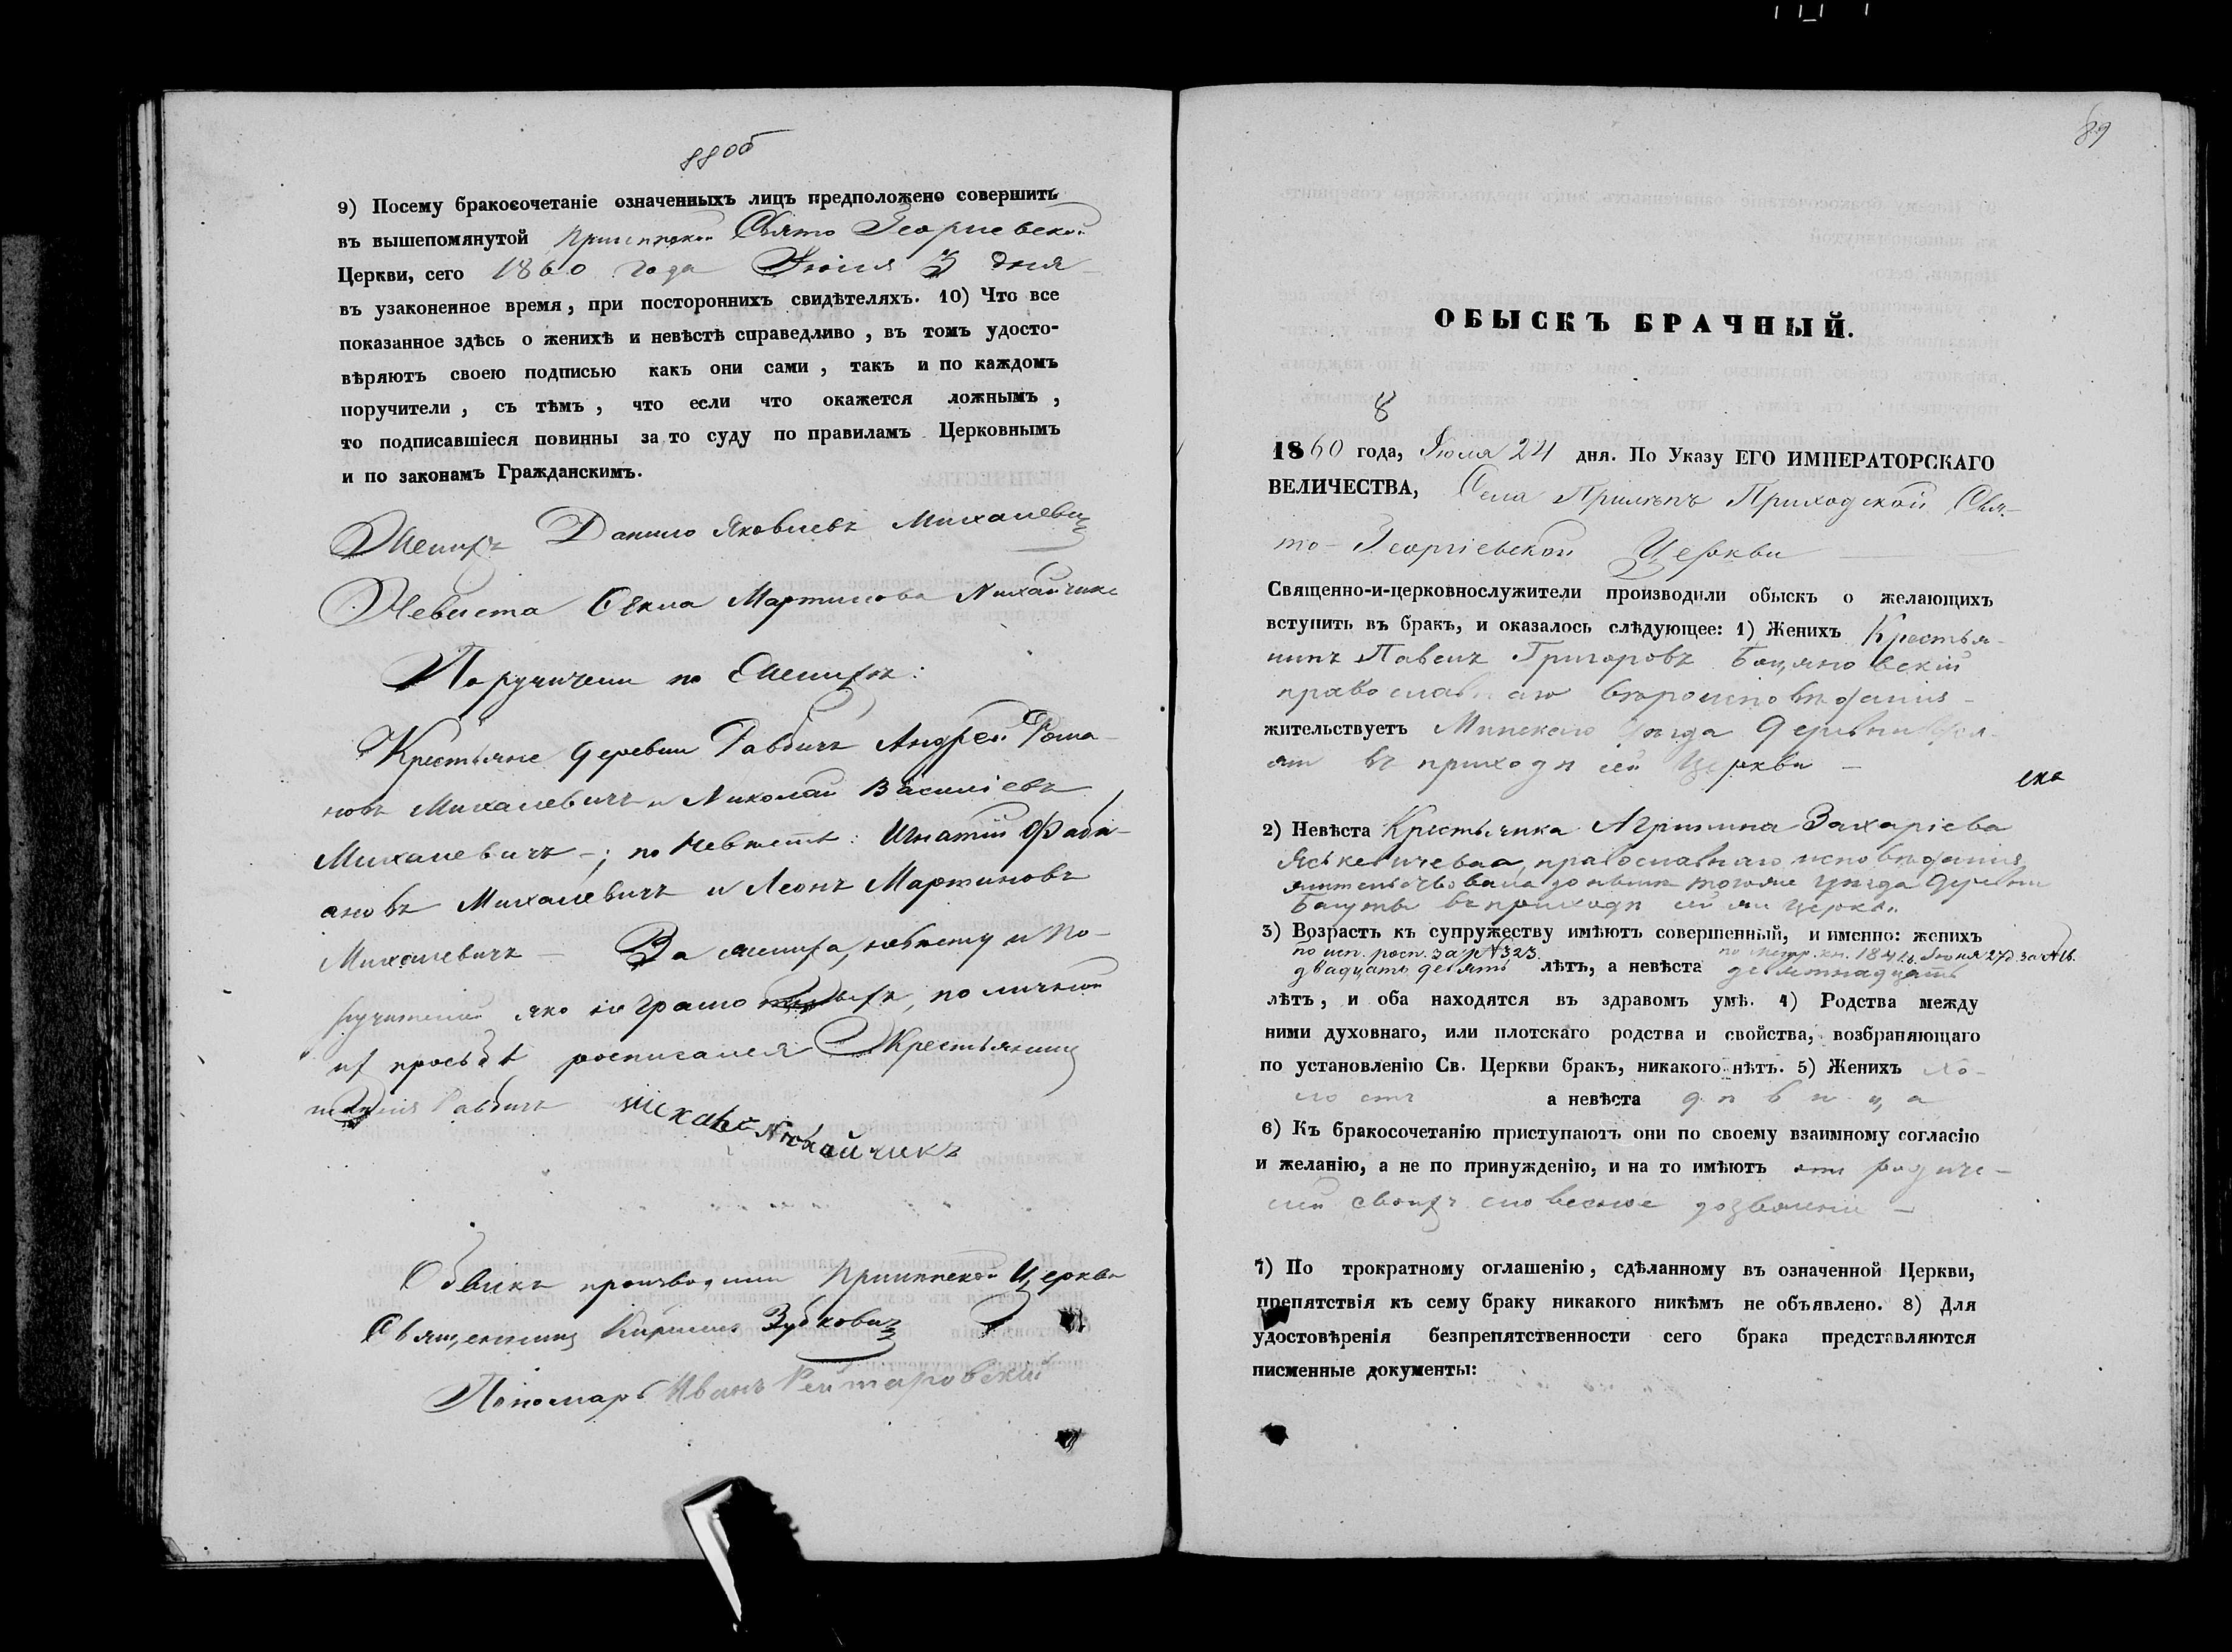 88 об
9) Посему бракосочетаніе означенныхъ лицъ предположено совершить
въ вышепомянутой Прилепской Свято Георгіевской
Церкви, сего 1860 года Іюля 3 дня
въ узаконенное время, при постороннихъ свидѣтеляхъ. 10) Что все
показанное здѣсь о женихѣ и невѣстѣ справедливо, въ томъ удосто-
вѣряютъ своею подписью какъ они сами, такъ и по каждомъ
поручители, съ тѣмъ, что если что окажется ложнымъ,
то подписавшіеся повинны за то суду по правиламъ Церковнымъ
и по законамъ Гражданскимъ.
Женихъ Данило Яковлевъ Михалевичъ
Невѣста Ѳекла Мартинова
Поручители по Женихѣ:
Крестьяне деревни Равбичъ Андрей Рома-
новъ Михалевичъ и Николай Василіевъ
Михалевичъ –; по Невѣстѣ: Игнатій Фаби-
ановъ Михалевичъ и Леонъ Мартиновъ
Михалевичъ – За жениха, невѣсту и по-
ручителей яко неграмотныхъ, по личной
ихъ просьбѣ росписался Крестьянинъ
Равбичъ Михайчикъ
Обыскъ производили Прилепской Церкви
Священникъ Кириллъ Зубковичъ
Пономарь Иванъ Рейтаровскій
89
ОБЫСКЪ БРАЧНЫЙ.
8
1860 года, Іюля 24 дня. По Указу ЕГО ИМПЕРАТОРСКАГО
ВЕЛИЧЕСТВА, Села Прилѣпъ Приходской Свя-
то-Георгіевской Церкви
Священно-и-церковнослужители производили обыскъ о желающихъ
вступить въ бракъ, и оказалось слѣдующее: 1) Женихъ Крестья-
нинъ Павелъ Григоровъ Боцяновскій
православнаго вѣроисповѣданія –
жительствуетъ Минскаго Уѣзда Деревни
въ приходѣ сей Церкви –
2) Невѣста Крестьянка Агрипина Захаріева
Яскевичевна, православнаго исповѣданія
жительствовала до нынѣ тогоже уѣзда Деревни
Багуты въ приходѣ сей же церкви
3) Возрастъ къ супружеству имѣютъ совершенный, и именно: женихъ
по исп. росп. за № 323. по метр. кн. 1841 г. Іюня 27 д. за № 16.
двадцать девять лѣтъ, а невѣста девятнадцать
лѣтъ, и оба находятся въ здравомъ умѣ. 4) Родства между
ними духовнаго, или плотскаго родства и свойства, возбраняющаго
по установленію Св. Церкви бракъ, никакого нѣтъ. 5) Женихъ хо-
лостъ а невѣста дѣвица
6) Къ бракосочетанію приступаютъ они по своему взаимному согласію
и желанію, а не по принужденію, и на то имѣютъ отъ родите-
лей своихъ словесное дозволеніе –
7) По трократному оглашенію, сдѣланному въ означенной Церкви,
препятствія къ сему браку никакого никѣмъ не объявлено. 8) Для
удостовѣренія безпрепятственности сего брака представляются
писменные документы: